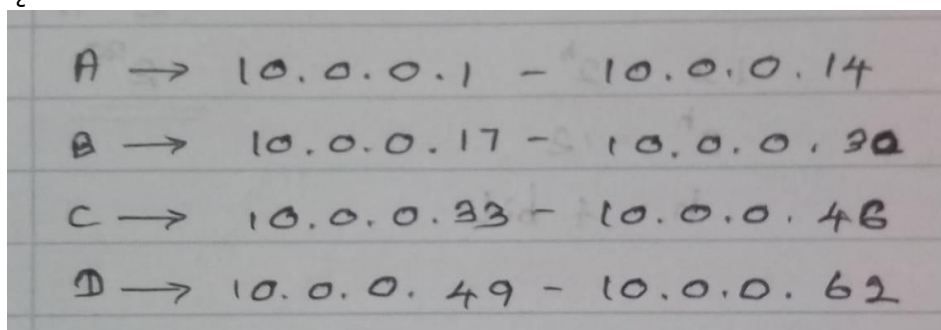 A → 10.0.0.1 - 10.0.0.14
B → 10.0.0.17 - 10.0.0.30
C → 10.0.0.33 - 10.0.0.46
D → 10.0.0.49 - 10.0.0.62